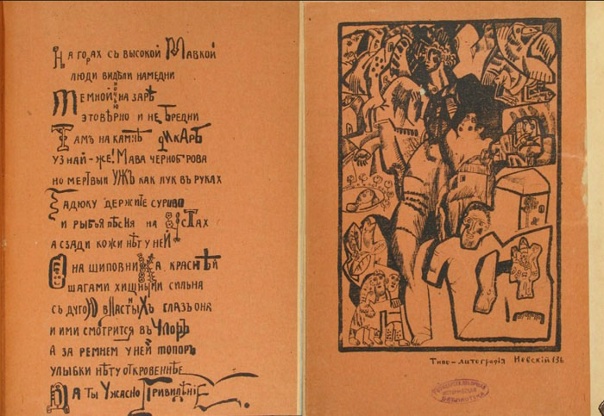 На горах съ высокой Мавкой
люди видѣли намедни
Темной на зарѣ
это вѣрно и не бредни
Тамъ на камнѣ дикарѣ
узнай-же! Мава черноброва
но мертвый ужъ как лук въ руках
Гадюку держите сурово
и рыбья пѣсня на устах
а сзади кожи нѣт у ней
Она шиповника, краснѣй
шагами хищными сильна
съ дугой властныхъ глазъ она
и ими смотрится въ упоръ
а за ремнем у ней топор
улыбки нѣту откровеннѣе
Да ты ужасно привидѣніе
Типо-литографія Невскій 136